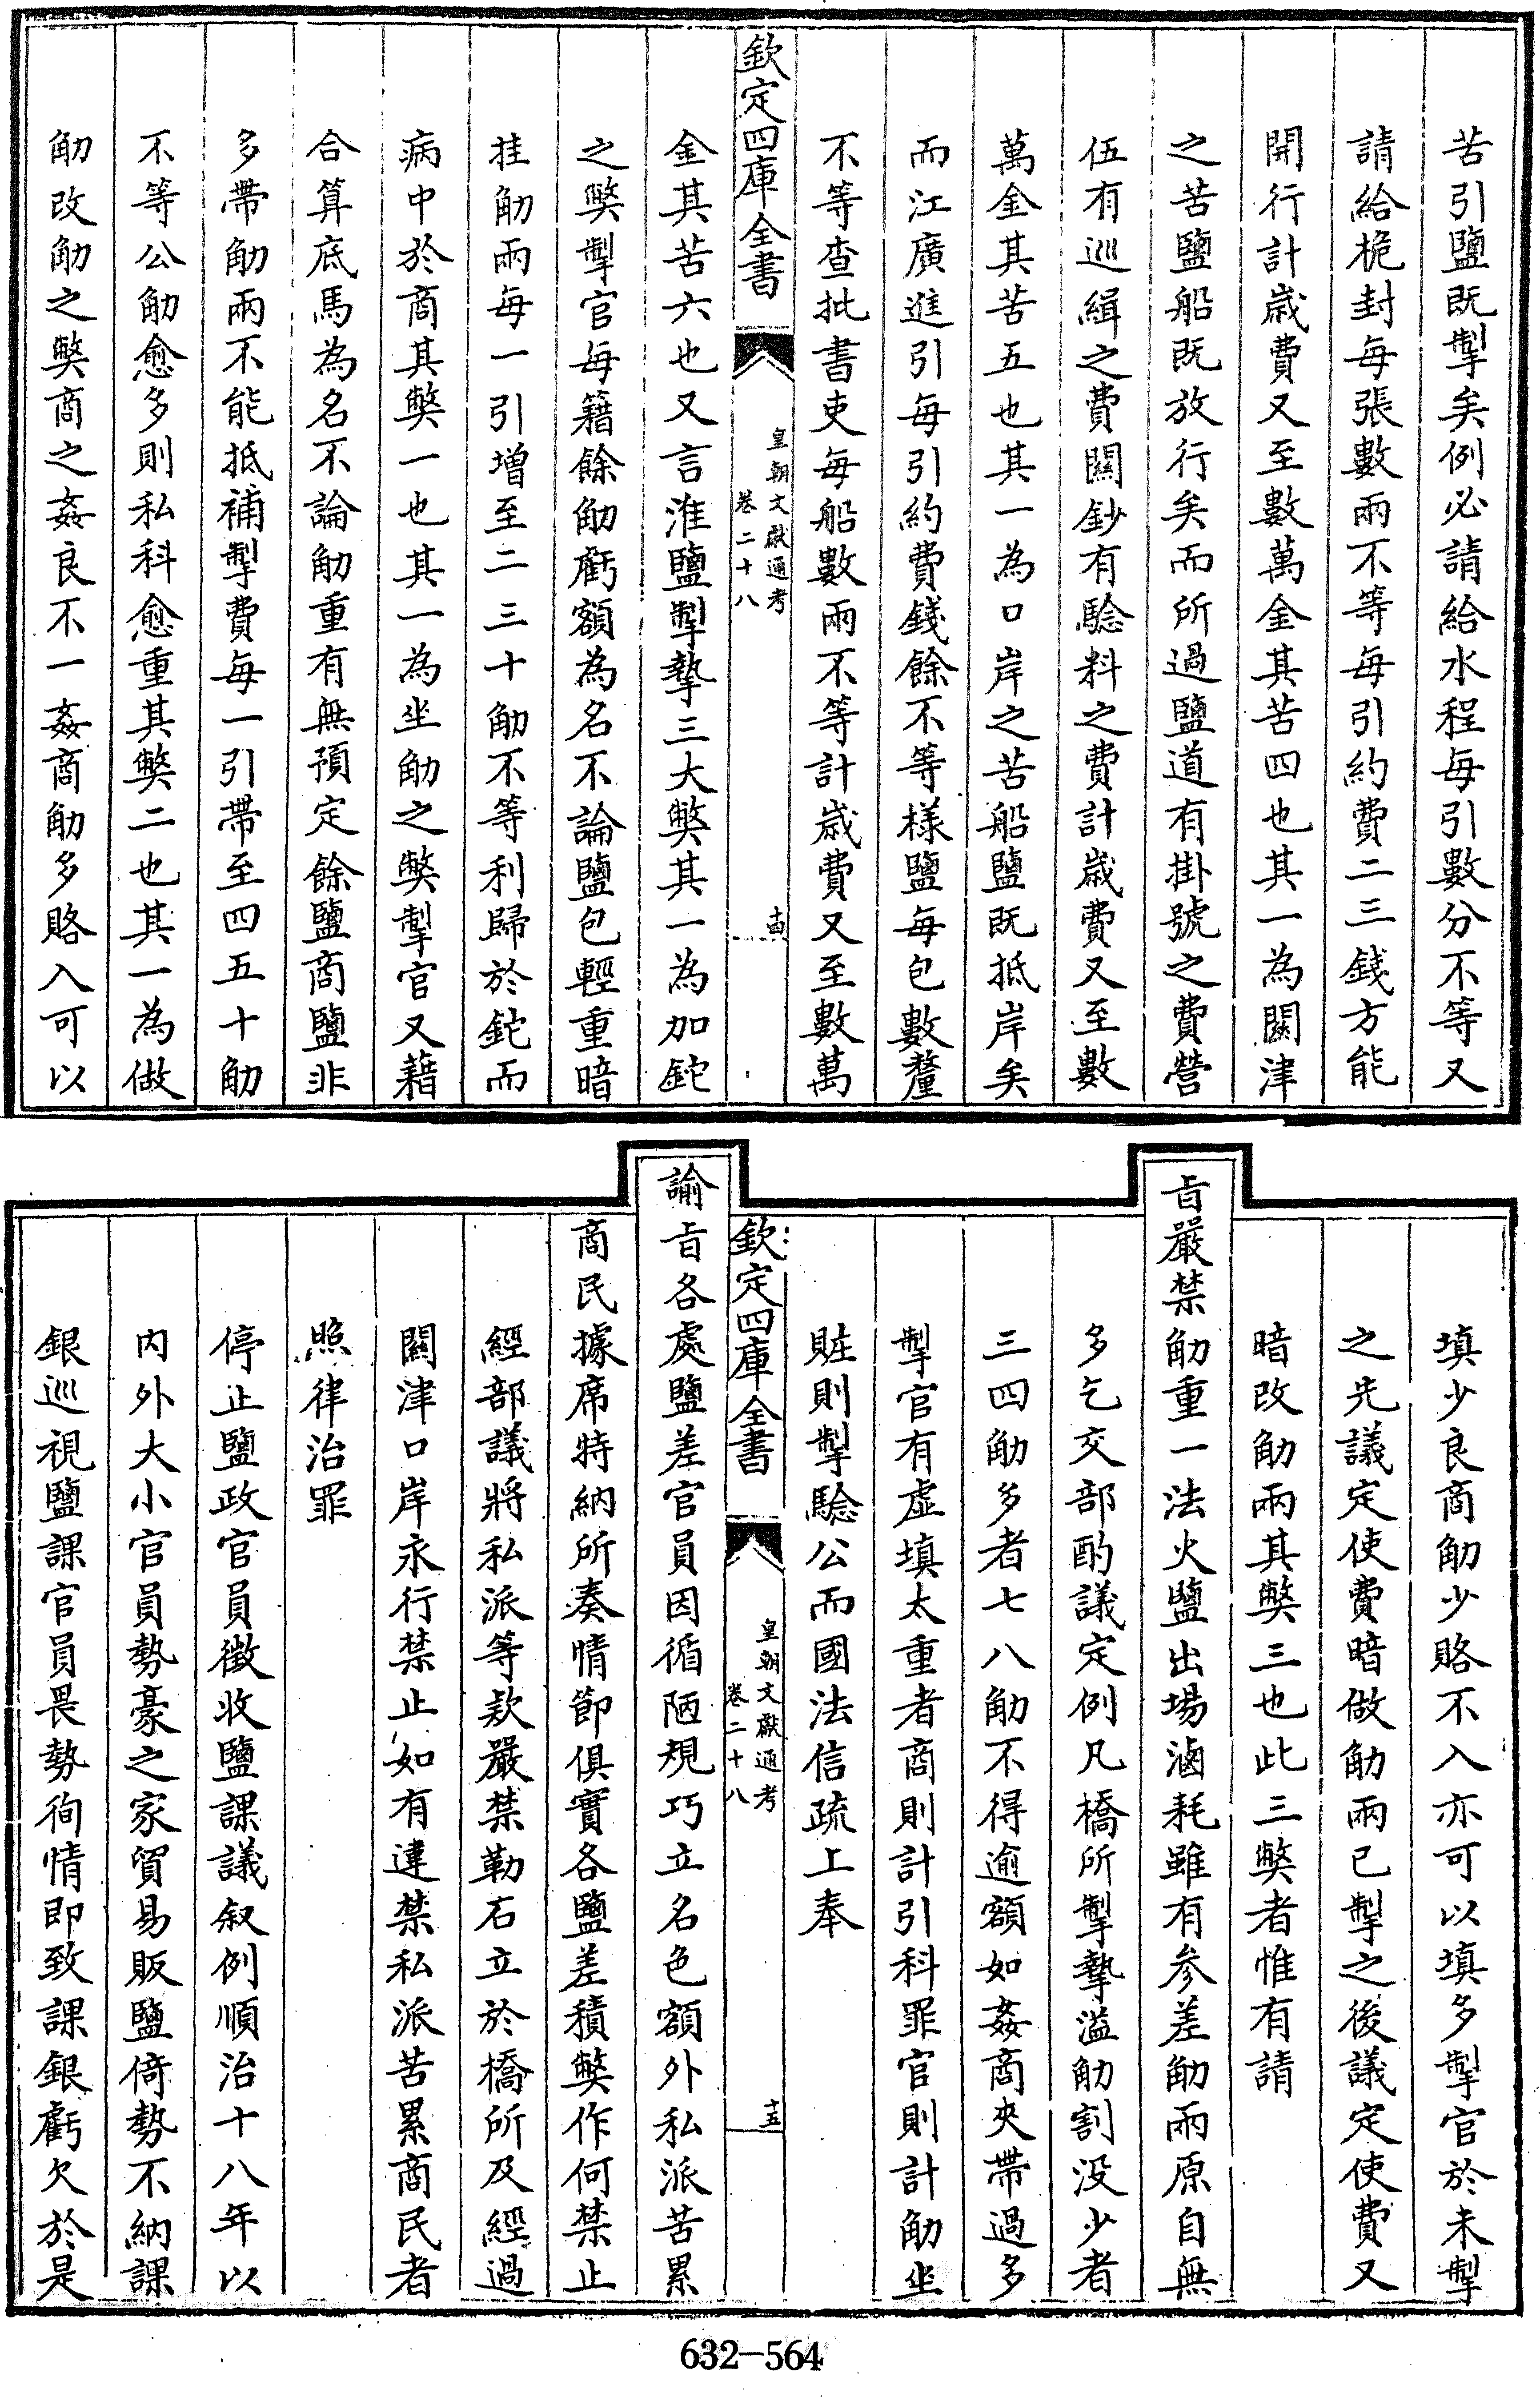 苦引鹽既掣矣例必請給水程每引數分不等又
請給桅封每張數兩不等每引約費二三錢方能
開行計歲費又至數萬金其苦四也其一為關津
之苦鹽船既放行矣而所過鹽道有掛號之費營
伍有巡緝之費關鈔有驗料之費計歲費又至數
萬金其苦五也其一為口岸之苦船鹽既抵岸矣
而江廣進引每引約費錢餘不等樣鹽每包數釐
不等查批書吏每船數兩不等計歲費又至數萬
欽定四庫全書
皇朝文獻通考
卷二十八
十四
金其苦六也又言淮鹽掣摯三大弊其一為加鉈
之弊掣官每籍餘觔虧額為名不論鹽包輕重暗
挂觔兩每一引增至二三十觔不等利歸於鉈而
病中於商其弊一也其一為坐觔之弊掣官又藉
合算底馬為名不論觔重有無預定餘鹽商鹽非
多帶觔兩不能抵補掣費每一引帶至四五十觔
不等公觔愈多則私科愈重其弊二也其一為做
觔改觔之弊商之姦良不一姦商觔多賂入可以
填少良商觔少賂不入亦可以填多掣官於未掣
之先議定使費暗做觔兩已掣之後議定使費又
暗改觔兩其弊三也此三弊者惟有請
旨嚴禁觔重一法火鹽出場滷耗雖有參差觔兩原自無
多乞交部酌議定例凡橋所掣摯溢觔割没少者
三四觔多者七八觔不得逾額如姦商夾帶過多
掣官有虛填太重者商則計引科罪官則計觔坐
賍則掣驗公而國法信疏上奉
欽定四庫全書
皇朝文獻通考
卷二十八
十五
諭旨各處鹽差官員因循陋規巧立名色額外私派苦累
商民據席特納所奏情節俱實各鹽差積弊作何禁止
經部議將私派等款嚴禁勒石立於橋所及經過
關津口岸永行禁止如有違禁私派苦累商民者
照律治罪
停止鹽政官員徵收鹽課議叙例順治十八年以
内外大小官員勢豪之家貿易販鹽倚勢不納課
銀巡視鹽課官員畏勢徇情即致課銀虧欠於是
632-564